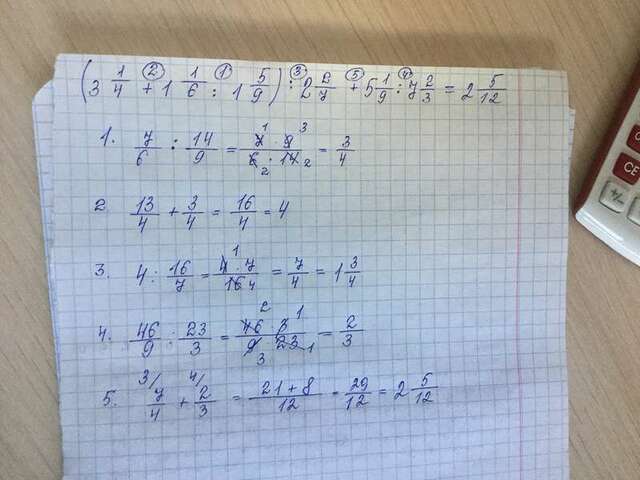 (3 1/4 + 1 1/6 : 1 5/9) : 2 2/7 + 5 1/9 : 7 2/3 = 2 5/12
② ① ③ ⑤ ④
1. 7/6 : 14/9 = 7·9/6·14 = 3/4
2. 13/4 + 3/4 = 16/4 = 4
3. 4 : 16/7 = 4·7/16 = 7/4 = 1 3/4
4. 46/9 : 23/3 = 46 3/9 23 = 2/3
5. 3/ 7/4 + 4/ 2/3 = 21+8/12 = 29/12 = 2 5/12
CE
+/-